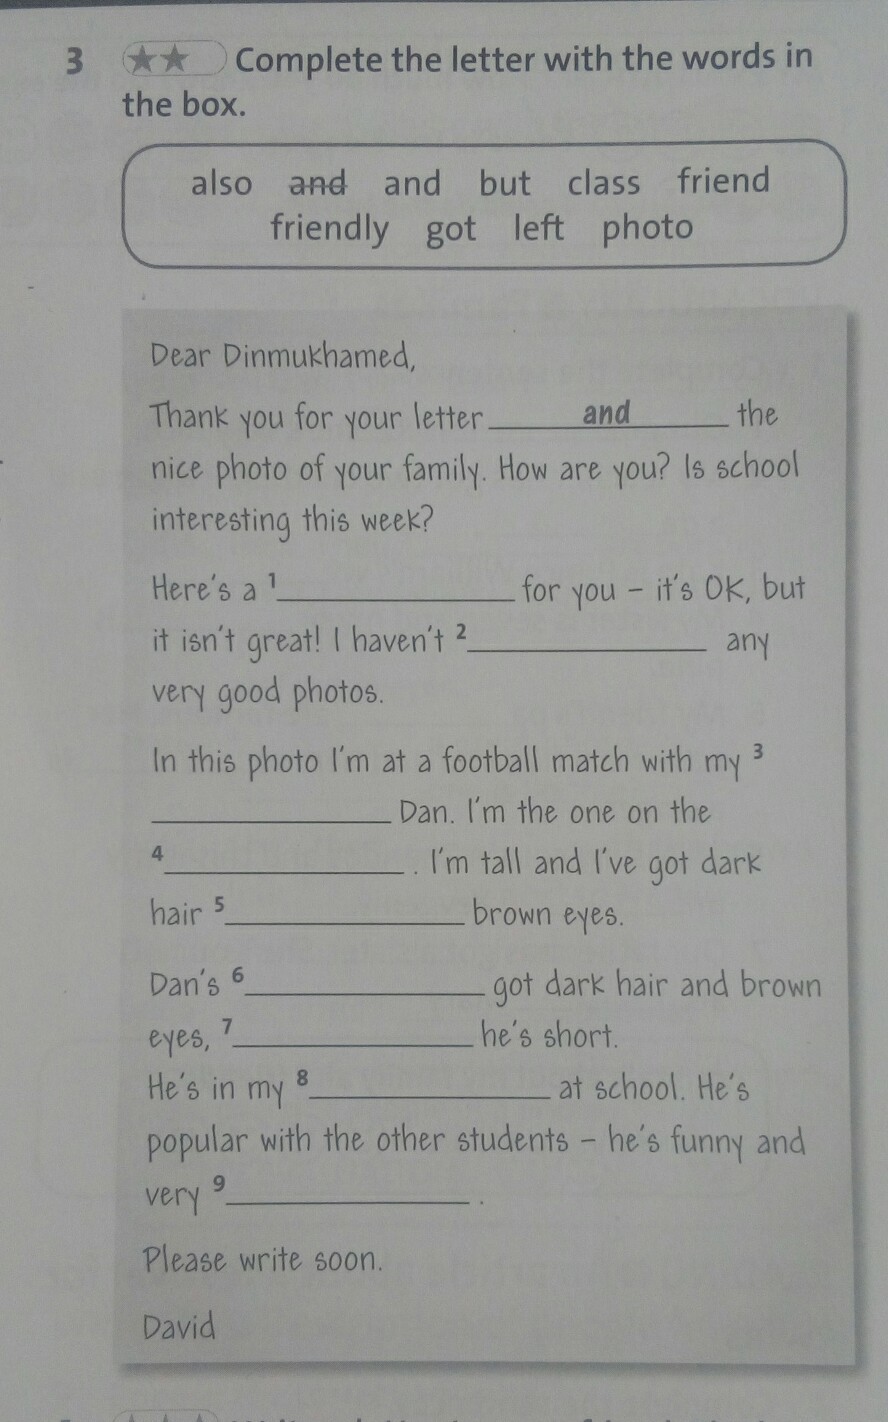 3 ★★ Complete the letter with the words in
the box.
also and and but class friend
friendly got left photo
Dear Dinmukhamed,
Thank you for your letter and the
nice photo of your family. How are you? Is school
interesting this week?
Here's a 1 for you – it's OK, but
it isn't great! I haven't 2 any
very good photos.
In this photo I'm at a football match with my 3
Dan. I'm the one on the
4 . I'm tall and I've got dark
hair 5 brown eyes.
Dan's 6 got dark hair and brown
eyes, 7 he's short.
He's in my 8 at school. He's
popular with the other students – he's funny and
very 9 .
Please write soon.
David